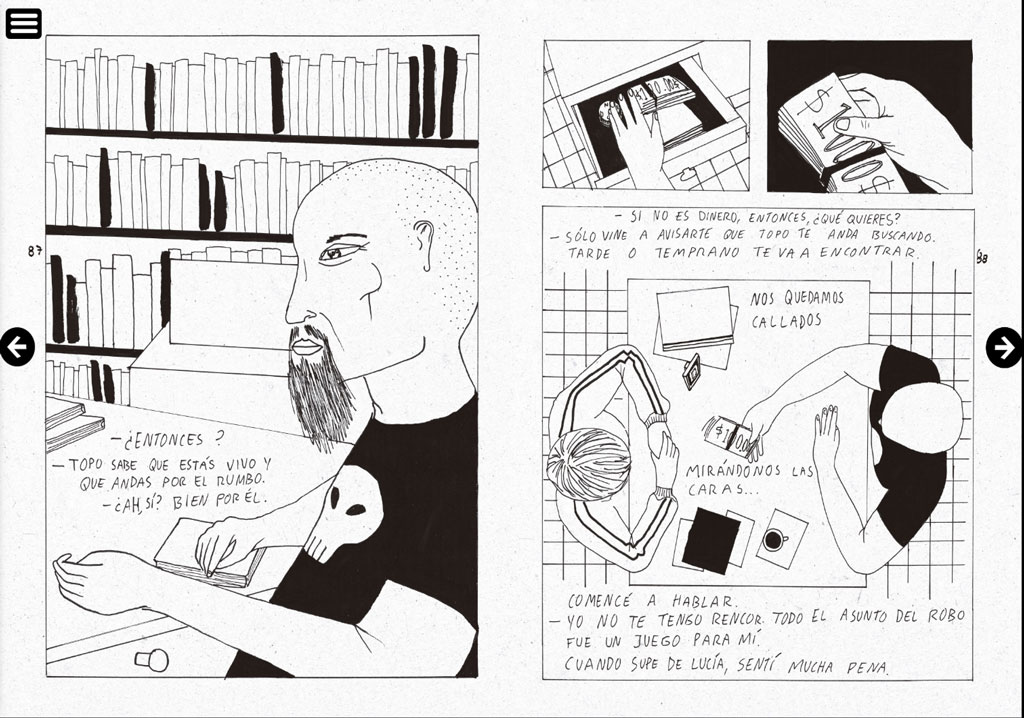 87
— ¿ENTONCES?
— TOPO SABE QUE ESTÁS VIVO Y
QUE ANDAS POR EL RUMBO.
— ¿AH, SÍ? BIEN POR ÉL.
$1000
$
— SI NO ES DINERO, ENTONCES, ¿QUÉ QUIERES?
— SÓLO VINE A AVISARTE QUE TOPO TE ANDA BUSCANDO.
TARDE O TEMPRANO TE VA A ENCONTRAR.
88
NOS QUEDAMOS
CALLADOS
MIRÁNDONOS LAS
CARAS...
COMENCÉ A HABLAR.
— YO NO TE TENGO RENCOR. TODO EL ASUNTO DEL ROBO
FUE UN JUEGO PARA MÍ.
CUANDO SUPE DE LUCÍA, SENTÍ MUCHA PENA.